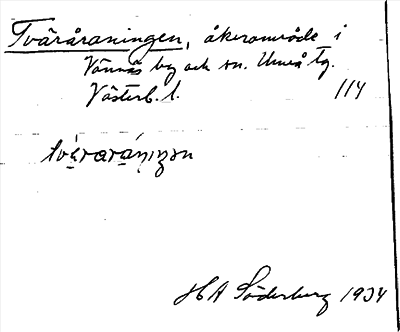 Tväråraningen, åkerområde i
Vännäs by och sn. Umeå tg.
Västerb. l. 114
HA Söderberg 1934